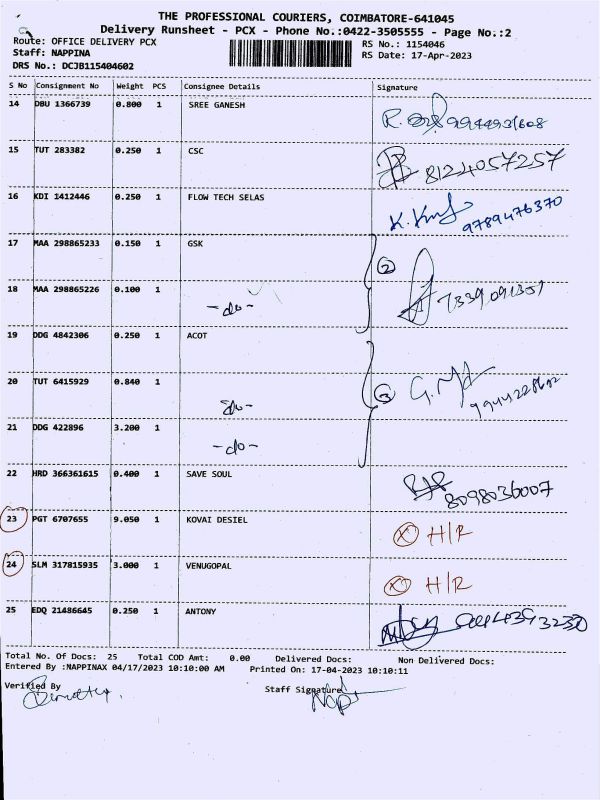 THE PROFESSIONAL COURIERS, COIMBATORE-641045
Delivery Runsheet - PCX - Phone No.:0422-3505555 - Page No.:2
Route: OFFICE DELIVERY PCX
RS No.: 1154046
Staff: NAPPINA
RS Date: 17-Apr-2023
DRS No.: DCJB115404602
S No Consignment No Weight PCS Consignee Details Signature
14 DBU 1366739 0.800 1 SREE GANESH
15 TUT 283382 0.250 1 CSC
8124057257
16 KDI 1412446 0.250 1 FLOW TECH SELAS
9789476370
17 MAA 298865233 0.150 1 GSK
2
18 MAA 298865226 0.100 1
-do-
19 DDG 4842306 0.250 1 ACOT
20 TUT 6415929 0.840 1
3
-do-
21 DDG 422896 3.200 1
-do-
22 HRD 366361615 0.400 1 SAVE SOUL
8098036007
23 PGT 6707655 9.050 1 KOVAI DESIEL
X H/R
24 SLM 317815935 3.000 1 VENUGOPAL
X H/R
25 EDQ 21486645 0.250 1 ANTONY
Total No. Of Docs: 25 Total COD Amt: 0.00 Delivered Docs: Non Delivered Docs:
Entered By :NAPPINAX 04/17/2023 10:10:00 AM Printed On: 17-04-2023 10:10:11
Verified By
Staff Signature